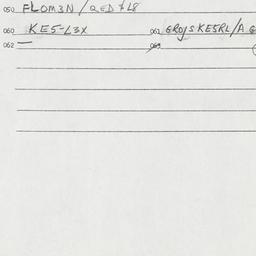 050 FLOM3N / QED $ L8
060 KE5-L3X 061 GROJSKE5RL/A G
062 — 063